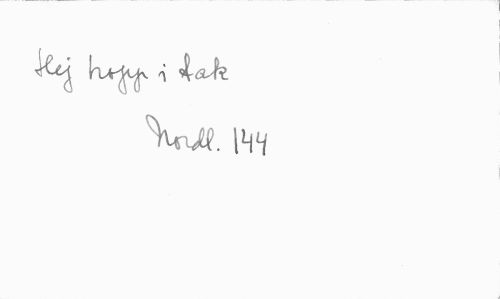 Hej hopp i tak
Nordl. 144